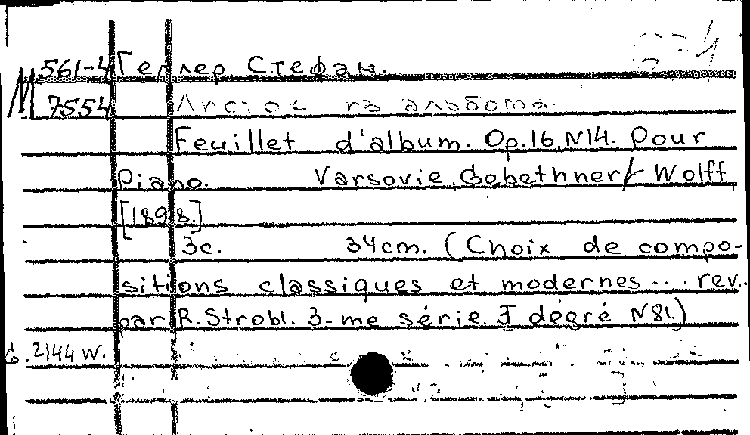 М 561-4 Геллер Стефан.
7554 Листок из альбома.
Feuillet d'album. Op.16 N14. Pour
Piano. Varsovie, Gebethner & Wolff
[1898.]
3c. 34cm. (Choix de compo-
sitions classiques et modernes... rev.
par R. Strobl. 3-me série. I degré N81)
G. 2144 W.